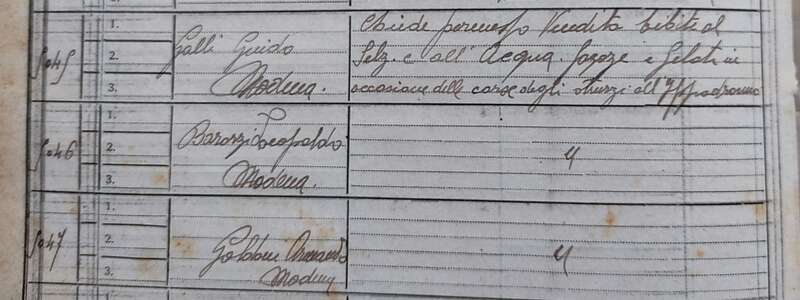 5045
1.
2.
3.
Galli Guido
Modena.
Chiede permesso Vendita bibite al
Selz. e all' Acqua. Gazoze e Gelati in
occasione delle corse degli struzzi all' Ippodromo
5046
1.
2.
3.
Barozzi Leopoldo
Modena.
"
5047
1.
2.
3.
Armando
Modena
"